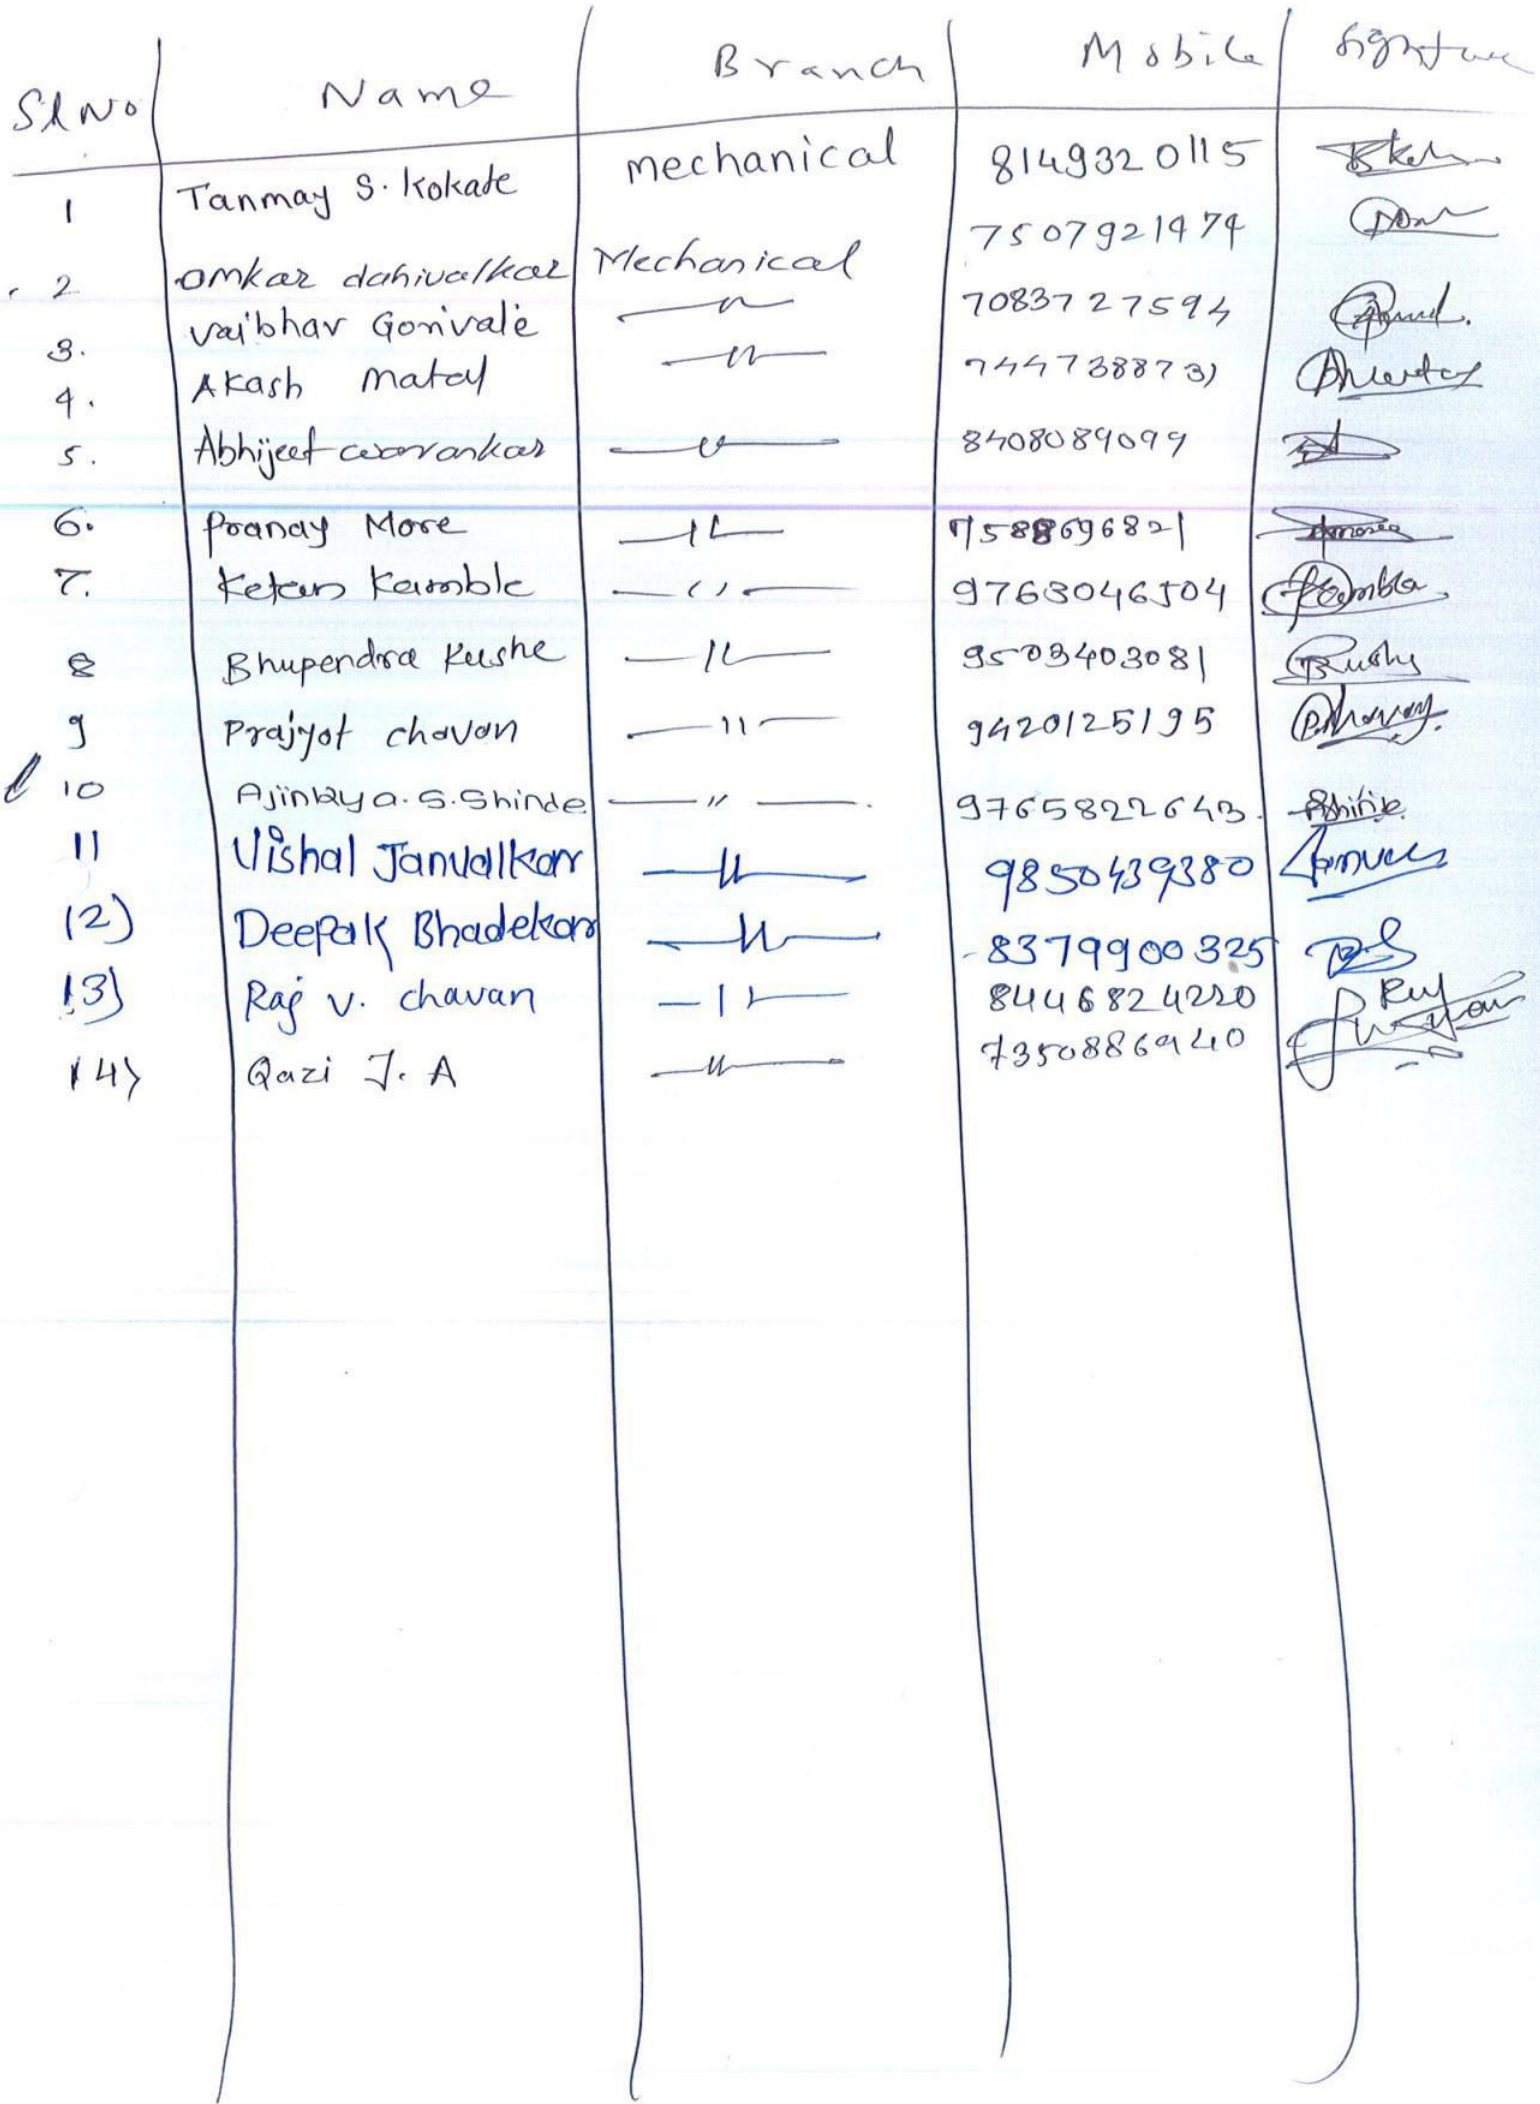 Sl No Name Branch Mobile Signature
1 Tanmay S. Kokate mechanical 8149320115
2 omkar dahivalkar Mechanical 7507921974
3. Vaibhav Gorivale —〃— 7083727594
4. Akash Matal —〃— 7447388731
5. Abhijeet —〃— 8408089099
6. Pranay More —〃— 7588696821
7. Ketan Kamble —〃— 9763046504
8 Bhupendra Kushe —〃— 9503403081
9 Prajyot chavan —〃— 9420125195
10 Ajinkya. S. Shinde —〃— 9765822643. AShinde
11 Vishal Janvalkar —〃— 9850439380
12) Deepak Bhadekar —〃— 8379900325
13) Raj v. chavan —〃— 8446824220
14) Qazi J. A —〃— 7350886940